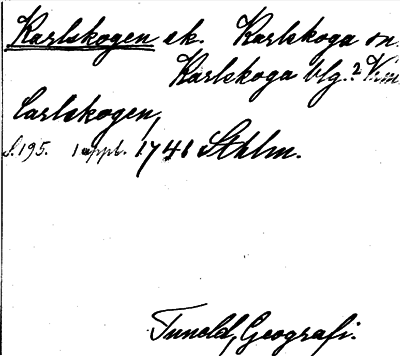 Karlskogen sk. Karlskoga sn.
Karlskoga blg.? Vrm
Carlskogen,
s. 195. 1 uppl. 1741 Sthlm.
Tuneld, Geografi.